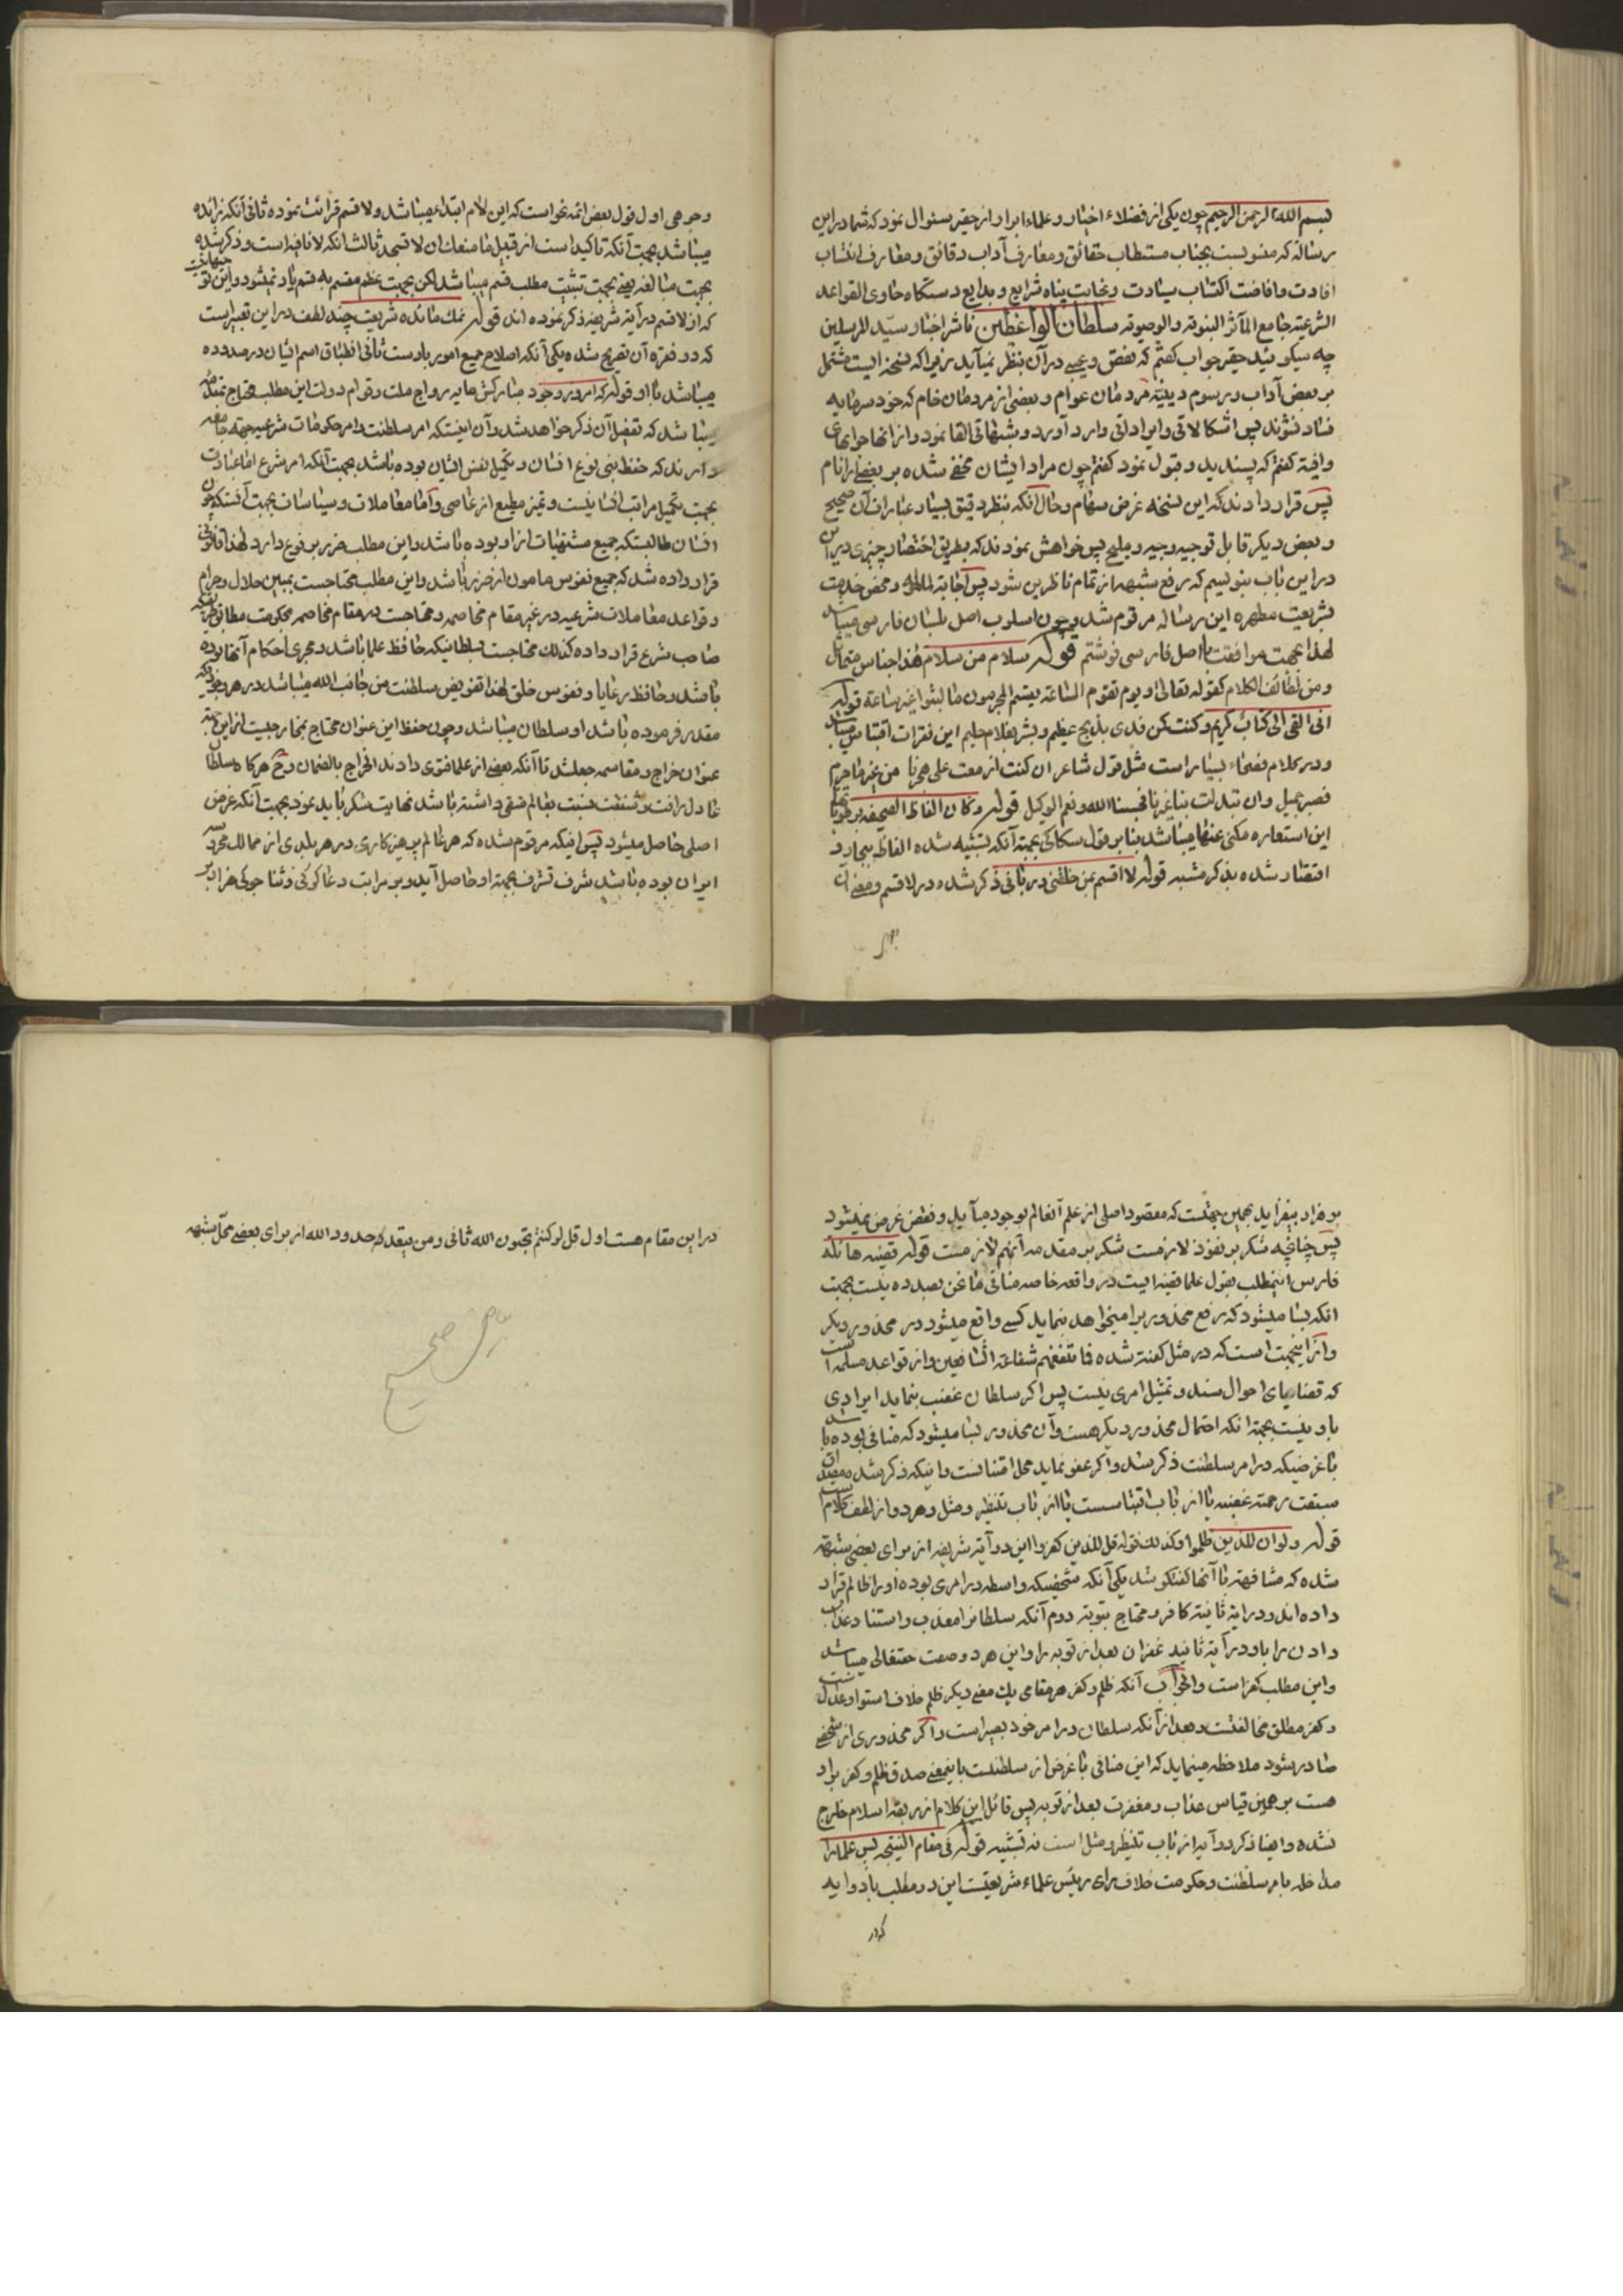 بسم الله الرحمن الرحیم چون یکی از فضلاء اخیار و علماء ابرار از حقیر سئوال نمود که شما در این
رساله که منسوبست بجناب مستطاب حقائق و معارف آداب دقائق و معارف انتساب
افادت و افاضت اکتساب سیادت و نجابت پناه شرایع و بدایع دستکاه حاوی القواعد
الشرعیة جامع المآثر النبویة و الوصویة سلطان الواعظین ناشر اخبار سید المرسلین
چه میکوئید حقیر جواب کفتم که نقص و عیبی در آن بنظر نمیآید زیرا که نسخه ایست مشتمل
بر بعض آداب و رسوم دینیة مردمان عوام و بعضی از مردمان خام که خود سرمایه
فساد فنونند پس اشکالاتی و ایراداتی وارد آورد و شبهاتی القا نمود و از انها جوابهای
وافیه کفتم که پسندید و قبول نمود کفتم چون مراد ایشان مخفی شده بر بعضی از انام
پس قرار دادند که این نسخه غرض سهام و حال آنکه بنظر دقیق بسیار عبارات آن صحیح
و بعض دیکر قابل توجیه وجیه و ملیح پس خواهش نمودند که بطریق اختصار چیزی در این
در این باب بنویسم که رفع شبهه از تمام ناظرین شود پس اجابة لملتمسه و محض خدمت
بشریعت مطهره این رساله مرقوم شد و چون اسلوب اصل بلسان فارسی میباشد
لهذا بجهت موافقت با اصل فارسی نوشتم قوله سلام من سلام هذا جناس متماثل
و من لطائف الکلام کقوله تعالی و یوم تقوم الساعة یقسم المجرمون ما لبثوا غیر ساعة قوله
انی القی الی کتاب کریم و کنت کمن فدی بذبح عظیم و بشر بغلام حلیم این فقرات اقتباس میباشد
و در کلام فصحاء بسیار است مثل قول شاعر ان کنت ازمعت علی هجرنا من غیر ما جرم
فصبر جمیل و ان تبدلت بنا غیرنا فحسبنا الله و نعم الوکیل قوله و کان الفاظ الصحیفه بر طوبا
این استعاره مکنی عنها میباشد بنا بر قول سکاکی بجهة آنکه تشبیه شده الفاظ ببحار و
اقتصار شده بذکر مشبه قوله لا اقسم بمن خلقنی در بانی ذکر شده در لا اقسم و معنی آن
وجوهی اول قول بعض ائمه نحو است که این لام ابتداء میباشد و لا قسم قرائت نموده ثانی آنکه زائده
میباشد بجهت آنکه تاکید است از قبیل ما منعک ان لا تسجد ثالثا آنکه لا نافیه است و ذکر شده
بجهت مبالغه یعنی بجهت تثبیت مطلب قسم میباشد لکن بجهت عظم مقسم به قسم یاد نمیشود و این
که از لا قسم در آیه شریفه ذکر نموده اند قوله نمک مائده شریعت چند لطف در این تعبیر است
که دو فقره آن تصریح شده یکی آنکه اصلاح جمیع امور باوست ثانی انطباق اسم ایشان در مدوده
میباشد با او قوله که امروز وجود مبارکش مایه رواج ملت و قوام دولت این مطلب محتاج
میباشد که تفصیل آن ذکر خواهد شد و آن اینستکه امر سلطنت و امر حکومات شرعیه جهة
دارند که حفظ بنی نوع انسان و تکمیل نفس ایشان بوده باشد بجهت آنکه امر شرع اما عبادات
بجهت تکمیل مراتب انسانیست و تمیز مطیع از عاصی و اما معاملات و سیاسات بجهت آنستکه چون
انسان طالبستکه جمیع مشتهیات از او بوده باشد و این مطلب ضرر بر نوع دارد لهذا قانونی
قرار داده شد که جمیع نفوس مامون از ضرر باشد و این مطلب محتاجست بمبین حلال و حرام
و قواعد معاملات شرعیه در غیر مقام مخاصمه و محتاجست در مقام مخاصمه بحکومت مطابق
صاحب شرع قرار داده کذلک محتاجست بسلطانیکه حافظ علما باشد و مجری احکام آنها بوده
باشد و حافظ رعایا و نفوس خلق لهذا تفویض سلطنت من جانب الله میباشد در هر
مقدر فرموده باشد او سلطان میباشد و چون حفظ این عنوان محتاج بمخارجیست از این جهة
عنوان خراج و مقاسمه جعل شد تا آنکه بعضی از علما فتوی دادند الخراج بالضمان و هرکاه سلطان
عادل رأفت و شفقت نسبت بعالم متقی داشته باشد نهایت شکر باید نمود بجهت آنکه غرض
اصلی حاصل میشود پس اینکه مرقوم شده که هر عالم پرهیزکاری در هر بلدی از ممالک محروسه
ایران بوده باشد شرف تشرف بجهة او حاصل آید و بر مراتب دعا کوئی و ثنا جوئی
بر مراد بیفزاید بهمین جهتست که مقصود اصلی از علم آنعالم بوجود میآید و نقض غرض نمیشود
پس چنانچه شکر بر نفوذ لازمست شکر بر مقدمه آنهم لازمست قوله قضیه هائله
فارس اینمطلب بقول علما قضیه ایست در واقعه خاصه منافی ما نحن بصدده نیست بجهت
انکه بسا میشود که رفع محذوریرا میخواهد بنماید کسی واقع میشود در محذور دیکر
و از اینجهت است که در مثل کفته شده فما تنفعهم شفاعة الشافعین و از قواعد مسلمه است
که قضایای احوال سند و تمثیل امری نیست پس اکر سلطان غضب بنماید ایرادی
باو نیست بجهة انکه احتمال محذور دیکر هست و آن محذور بسا میشود که منافی بوده باشد
با غرضیکه در امر سلطنت ذکر شد و اکر عفو نماید محل امتنانست و اینکه ذکر شد مصداق
سبقت رحمته غضبه یا از باب اقتباسست یا از باب تنظیر و مثل و هر دو از لطف کلام است
قوله و لو ان للذین ظلموا و کذلک قوله قل للذین کفروا این دو آیه شریفه از برای بعضی شبهه
شده که مشافهة با آنها کفتکو شد یکی آنکه شخصیکه واسطه در امری بوده او را ظالم قرار
داده اند و در آیة ثانیه کافر و محتاج بتوبه دوم آنکه سلطانرا معذب و استناد عذاب
دادن را باو در آیه ثانیه غفران بعد از توبه را و این هر دو وصف حقتعالی میباشد
و این مطلب کفر است و الجواب آنکه ظلم و کفر هر مقامی یک معنی دیکر ظلم خلاف استوا و عدلست
و کفر مطلق مخالفتست و بعد از آنکه سلطان در امر خود بصیر است و اکر محذوری از شخصی
صادر بشود ملاحظه مینماید که این منافی با غرض از سلطنتست باینمعنی صدق ظلم و کفر بر او
هست بر همین قیاس عذاب و مغفرت بعد از توبه پس قائل این کلام از ربقه اسلام خارج
نشده و ایضا ذکر دو آیه از باب تنظیر و مثل است نه تشبیه قوله فی مقام النتیجه پس علما را
مداخله بامر سلطنت و حکومت خلاف رای رئیس علماء شریعتست این دو مطلب با دو آیه
در این مقام هست اول قل ان کنتم تحبون الله ثانی و من یتعد حدود الله از برای بعضی محل شبهه